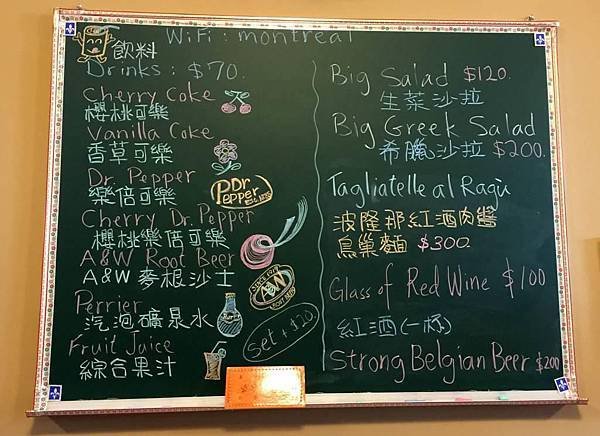 WiFi : montreal
飲料
Drinks : $70.
Cherry Coke
櫻桃可樂
Vanilla Coke
香草可樂
Dr. Pepper
樂倍可樂
Dr
Pepper
Cherry Dr. Pepper
櫻桃樂倍可樂
A&W Root Beer
A&W 麥根沙士
A&W
ROOT BEER
Perrier
汽泡礦泉水
Fruit Juice
綜合果汁
Set + $20.
Big Salad $120.
生菜沙拉
Big Greek Salad
希臘沙拉 $200.
Tagliatelle al Ragù
波隆那紅酒肉醬
鳥巢麵 $300.
Glass of Red Wine $100
紅酒(一杯)
Strong Belgian Beer $200